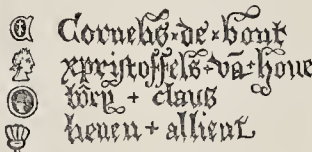 Cornelis × de × bont
xpristoffels + vā + hove
+ claus
+ allient